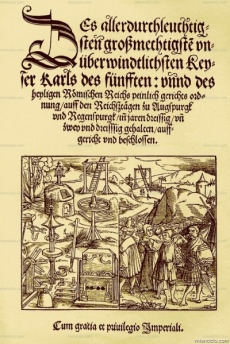 DEs allerdurchleuchtig
sten großmechtigstē vn
überwindtlichsten Key
ser Karls des fünfften: vnnd des
heyligen Römischen Reichs peinlich gerichts ord
nung/ auff den Reichsztägen zů Augspurgk
vnd Regenspurgk/ in jaren dreissig/ vn̄
zwey vnd dreissig gehalten/ auff-
gericht vnd beschlossen.
Cum gratia et priuilegio Imperiali.